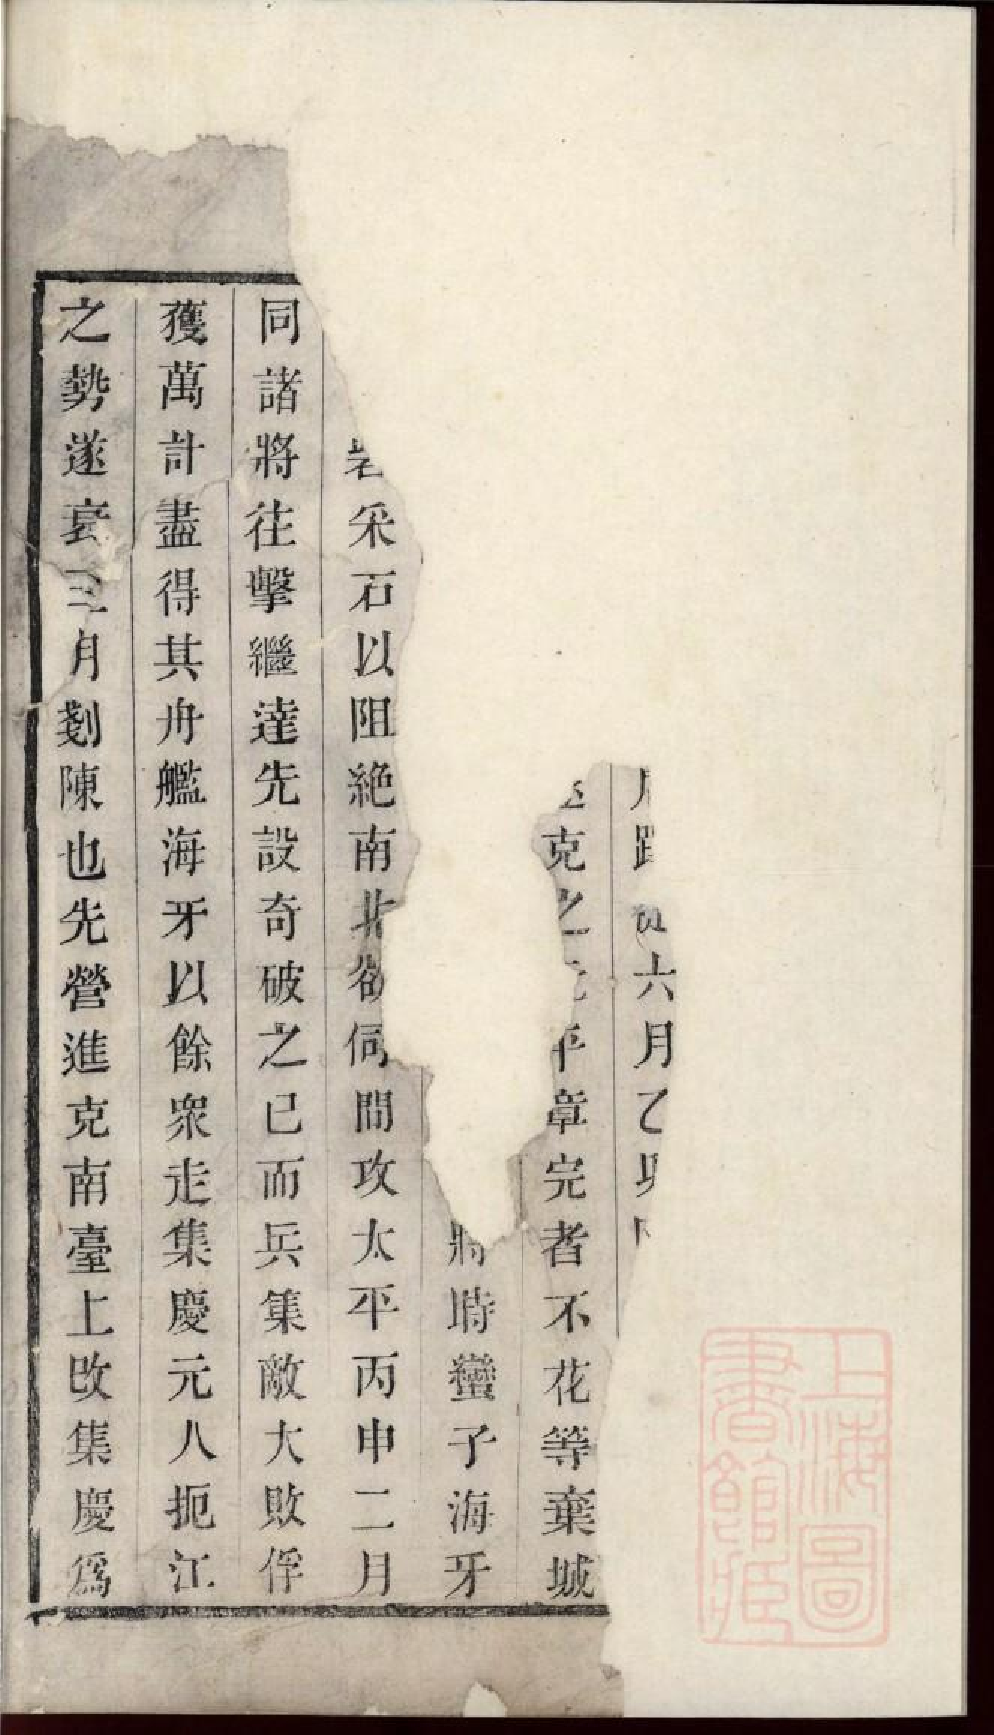 六月乙
克之平章完者不花等棄城
將時蠻子海牙
采石以阻絕南北欲伺間攻太平丙申二月
同諸將往擊繼達先設奇破之已而兵集敵大敗俘
獲萬計盡得其舟艦海牙以餘衆走集慶元人扼江
之勢遂衰三月剗陳也先營進克南臺上攺集慶爲
上海圖
書館所